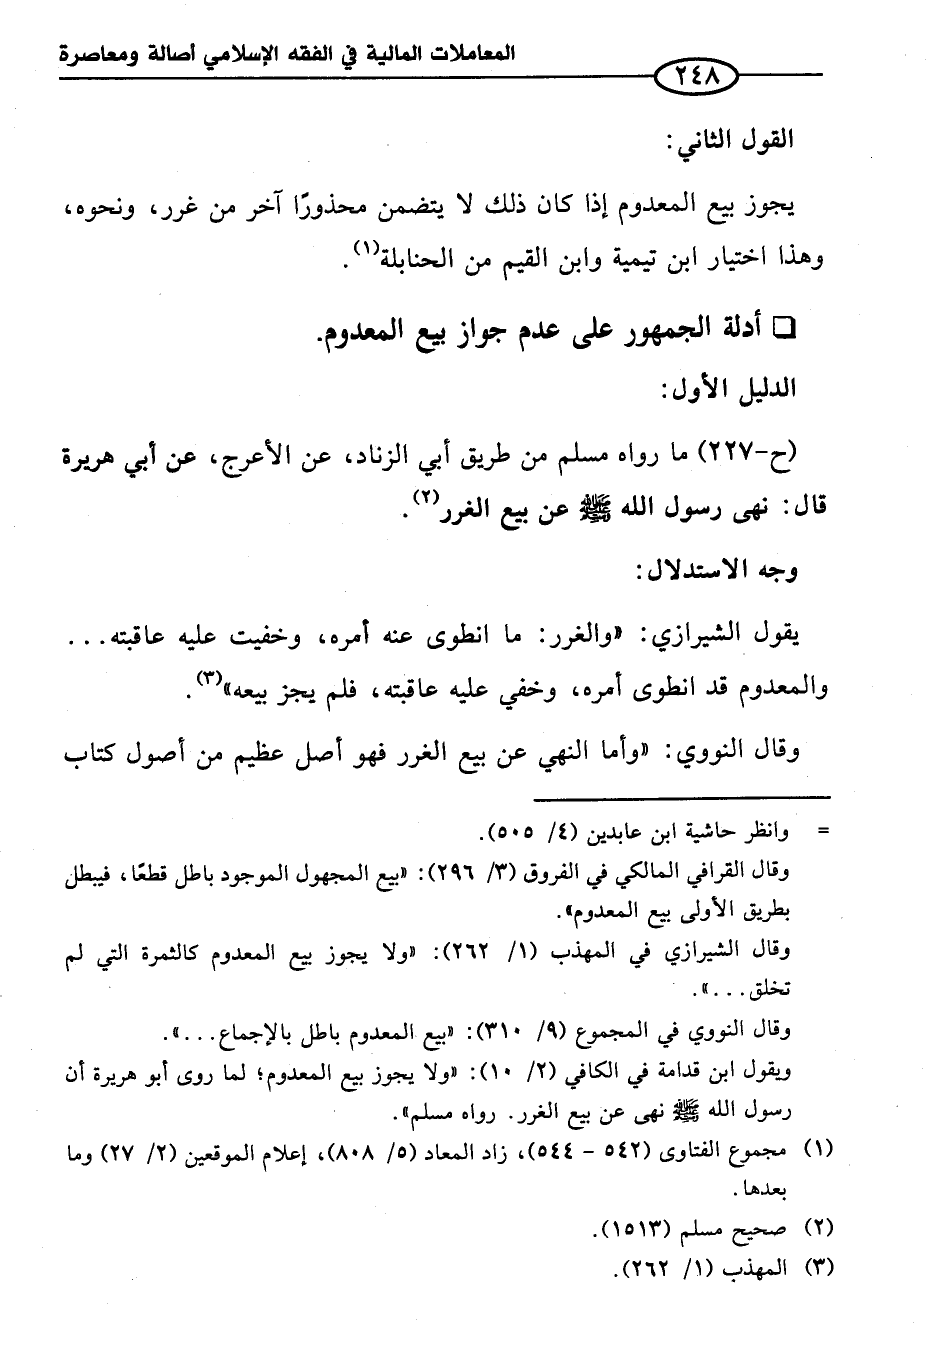 المعاملات المالية في الفقه الإسلامي أصالة ومعاصرة
٢٤٨
القول الثاني:
يجوز بيع المعدوم إذا كان ذلك لا يتضمن محذورًا آخر من غرر، ونحوه،
وهذا اختيار ابن تيمية وابن القيم من الحنابلة(١).
❑ أدلة الجمهور على عدم جواز بيع المعدوم.
الدليل الأول:
(ح-٢٢٧) ما رواه مسلم من طريق أبي الزناد، عن الأعرج، عن أبي هريرة
قال: نهى رسول الله ﷺ عن بيع الغرر(٢).
وجه الاستدلال:
يقول الشيرازي: «والغرر: ما انطوى عنه أمره، وخفيت عليه عاقبته...
والمعدوم قد انطوى أمره، وخفي عليه عاقبته، فلم يجز بيعه»(٣).
وقال النووي: «وأما النهي عن بيع الغرر فهو أصل عظيم من أصول كتاب
= وانظر حاشية ابن عابدين (٤/ ٥٠٥).
وقال القرافي المالكي في الفروق (٣/ ٢٩٦): «بيع المجهول الموجود باطل قطعًا، فيبطل
بطريق الأولى بيع المعدوم».
وقال الشيرازي في المهذب (١/ ٢٦٢): «ولا يجوز بيع المعدوم كالثمرة التي لم
تخلق...».
وقال النووي في المجموع (٩/ ٣١٠): «بيع المعدوم باطل بالإجماع...».
ويقول ابن قدامة في الكافي (٢/ ١٠): «ولا يجوز بيع المعدوم؛ لما روى أبو هريرة أن
رسول الله ﷺ نهى عن بيع الغرر. رواه مسلم».
(١) مجموع الفتاوى (٥٤٢ - ٥٤٤)، زاد المعاد (٥/ ٨٠٨)، إعلام الموقعين (٢/ ٢٧) وما
بعدها.
(٢) صحيح مسلم (١٥١٣).
(٣) المهذب (١/ ٢٦٢).